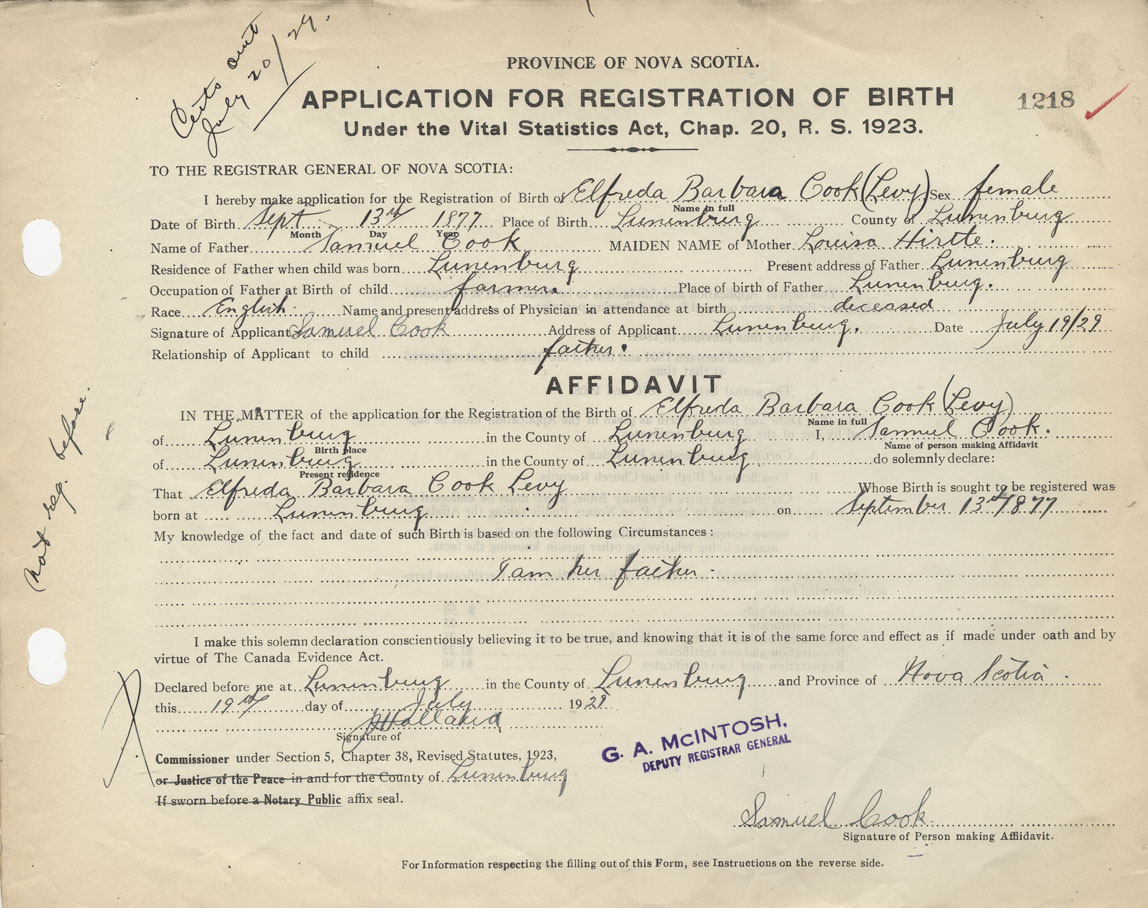 Certs out
July 20/29.
PROVINCE OF NOVA SCOTIA.
APPLICATION FOR REGISTRATION OF BIRTH
1218
Under the Vital Statistics Act, Chap. 20, R. S. 1923.
TO THE REGISTRAR GENERAL OF NOVA SCOTIA:
I hereby make application for the Registration of Birth of Elfreda Barbara Cook (Levy) Sex female
Name in full
Date of Birth Sept 13th 1877 Place of Birth Lunenburg County of Lunenburg
Month Day Year
Name of Father Samuel Cook MAIDEN NAME of Mother Louisa Hirtle.
Residence of Father when child was born Lunenburg Present address of Father Lunenburg
Occupation of Father at Birth of child farmer. Place of birth of Father Lunenburg.
Race English Name and present address of Physician in attendance at birth deceased
Signature of Applicant Samuel Cook Address of Applicant Lunenburg. Date July 19/29
Relationship of Applicant to child father.
AFFIDAVIT
IN THE MATTER of the application for the Registration of the Birth of Elfreda Barbara Cook (Levy)
Name in full
of Lunenburg in the County of Lunenburg I, Samuel Cook.
Birth place Name of person making Affidavit
of Lunenburg in the County of Lunenburg do solemnly declare:
Present residence
That Elfreda Barbara Cook Levy Whose Birth is sought to be registered was
born at Lunenburg on September 13th 1877
My knowledge of the fact and date of such Birth is based on the following Circumstances:
I am her father.
not reg before.
I make this solemn declaration conscientiously believing it to be true, and knowing that it is of the same force and effect as if made under oath and by
virtue of The Canada Evidence Act.
Declared before me at Lunenburg in the County of Lunenburg and Province of Nova Scotia.
this 19th day of July 1929
Holland
Signature of
Commissioner under Section 5, Chapter 38, Revised Statutes, 1923,
or Justice of the Peace in and for the County of Lunenburg
If sworn before a Notary Public affix seal.
G. A. McINTOSH,
DEPUTY REGISTRAR GENERAL
Samuel Cook
Signature of Person making Affidavit.
For Information respecting the filling out of this Form, see Instructions on the reverse side.